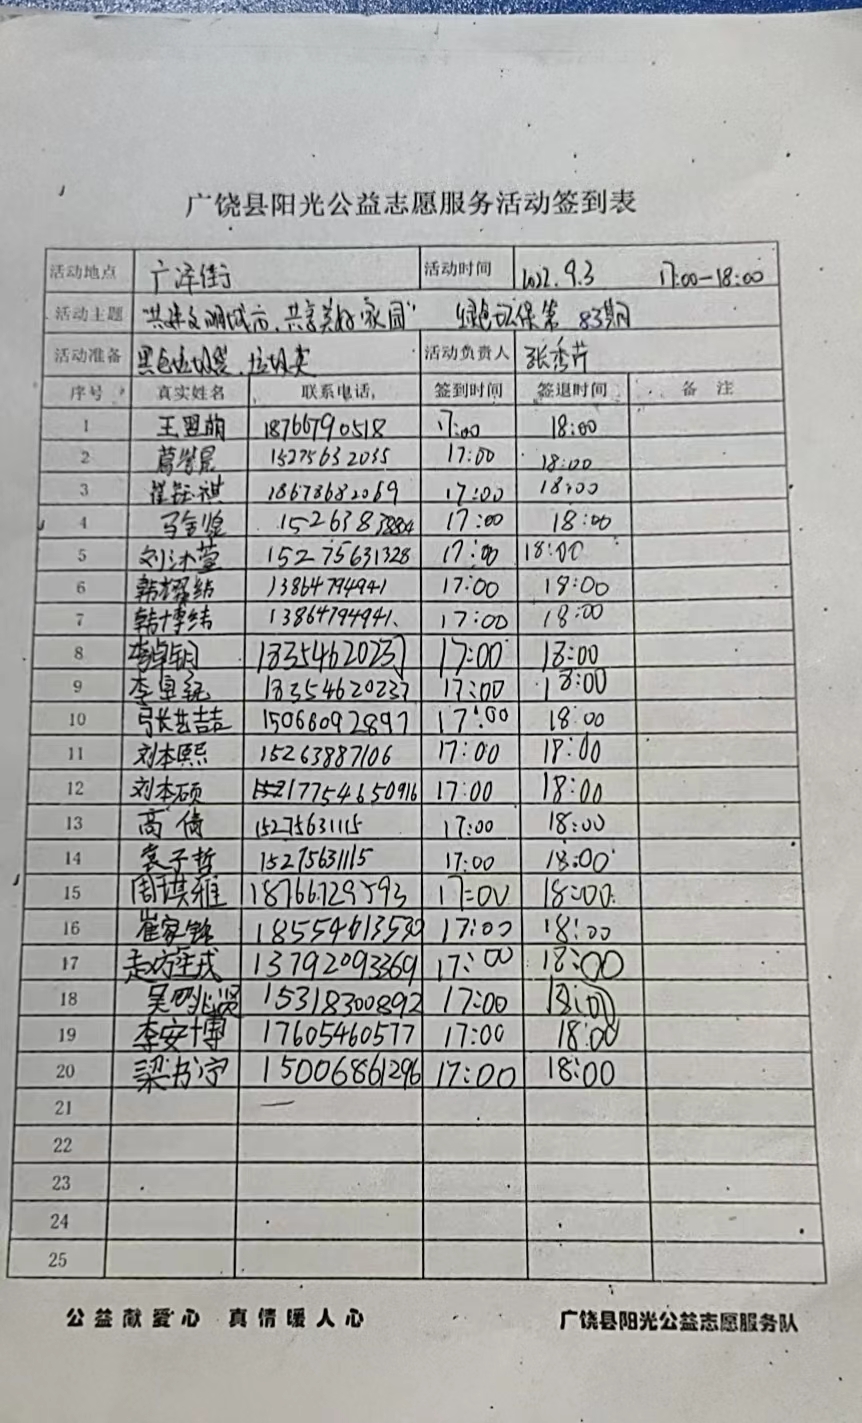 广饶县阳光公益志愿服务活动签到表
活动地点 广泽街 活动时间 2022.9.3 17:00-18:00
活动主题 "共建文明城市,共享美好家园" 绿色环保第83期
活动准备 黑色垃圾袋、垃圾夹 活动负责人 张秀芹
序号 真实姓名 联系电话 签到时间 签退时间 备注
1 王盟萌 18766790518 17:00 18:00
2 15275632035 17:00 18:00
3 崔钰祺 18678682069 17:00 18:00
4 马金煌 15263833884 17:00 18:00
5 刘沐萱 15275631328 17:00 18:00
6 韩耀纬 13864794941 17:00 18:00
7 韩博纬 13864794941 17:00 18:00
8 李卓钥 18354620237 17:00 18:00
9 李卓 18354620237 17:00 18:00
10 张喆喆 15066092897 17:00 18:00
11 刘本熙 15263887106 17:00 18:00
12 刘本硕 17754650916 17:00 18:00
13 高倚 15275631115 17:00 18:00
14 袁子哲 15275631115 17:00 18:00
15 周琪雅 18766729593 17:00 18:00
16 崔家铭 18554613530 17:00 18:00
17 13792093369 17:00 18:00
18 吴兆贤 15318300892 17:00 18:00
19 李安博 17605460577 17:00 18:00
20 梁书宁 15006861296 17:00 18:00
21
22
23
24
25
公益献爱心 真情暖人心 广饶县阳光公益志愿服务队